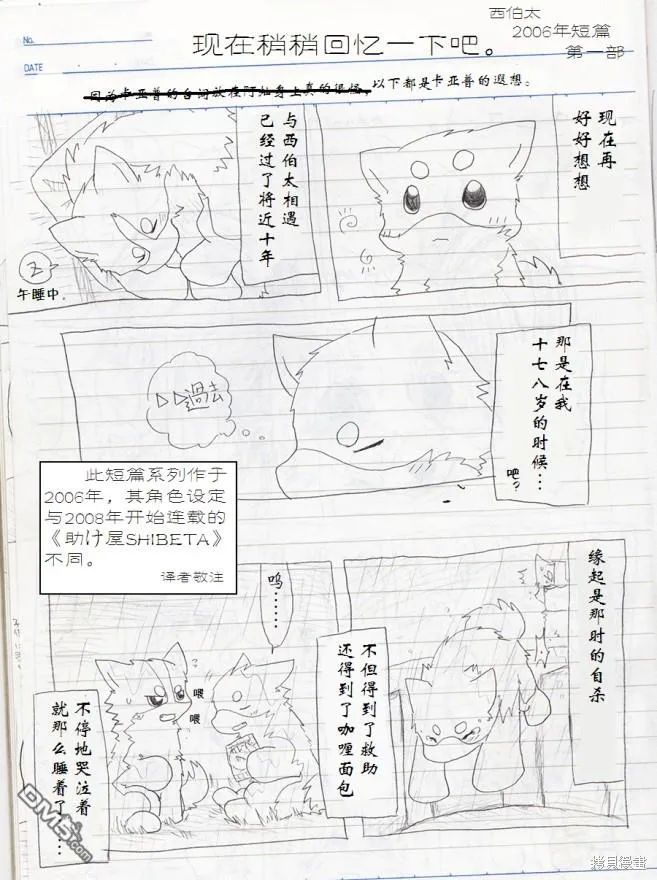 西伯太
2006年短篇
第一部
No.
DATE
现在稍稍回忆一下吧。
因为卡亚普的台词放在阿灿身上真的很怪，以下都是卡亚普的遐想。
现在再
好好想想
与西伯太相遇
已经过了将近十年
Z
午睡中.
那是在我
十七八岁的时候…
吧？
▷▷過去
此短篇系列作于
2006年，其角色设定
与2008年开始连载的
《助け屋SHIBETA》
不同。
译者敬注
缘起是那时的自杀
不但得到了救助
还得到了咖喱面包
呜……
喂
喂
不停地哭泣着
就那么睡着了……
DM5.com
拷貝漫畫